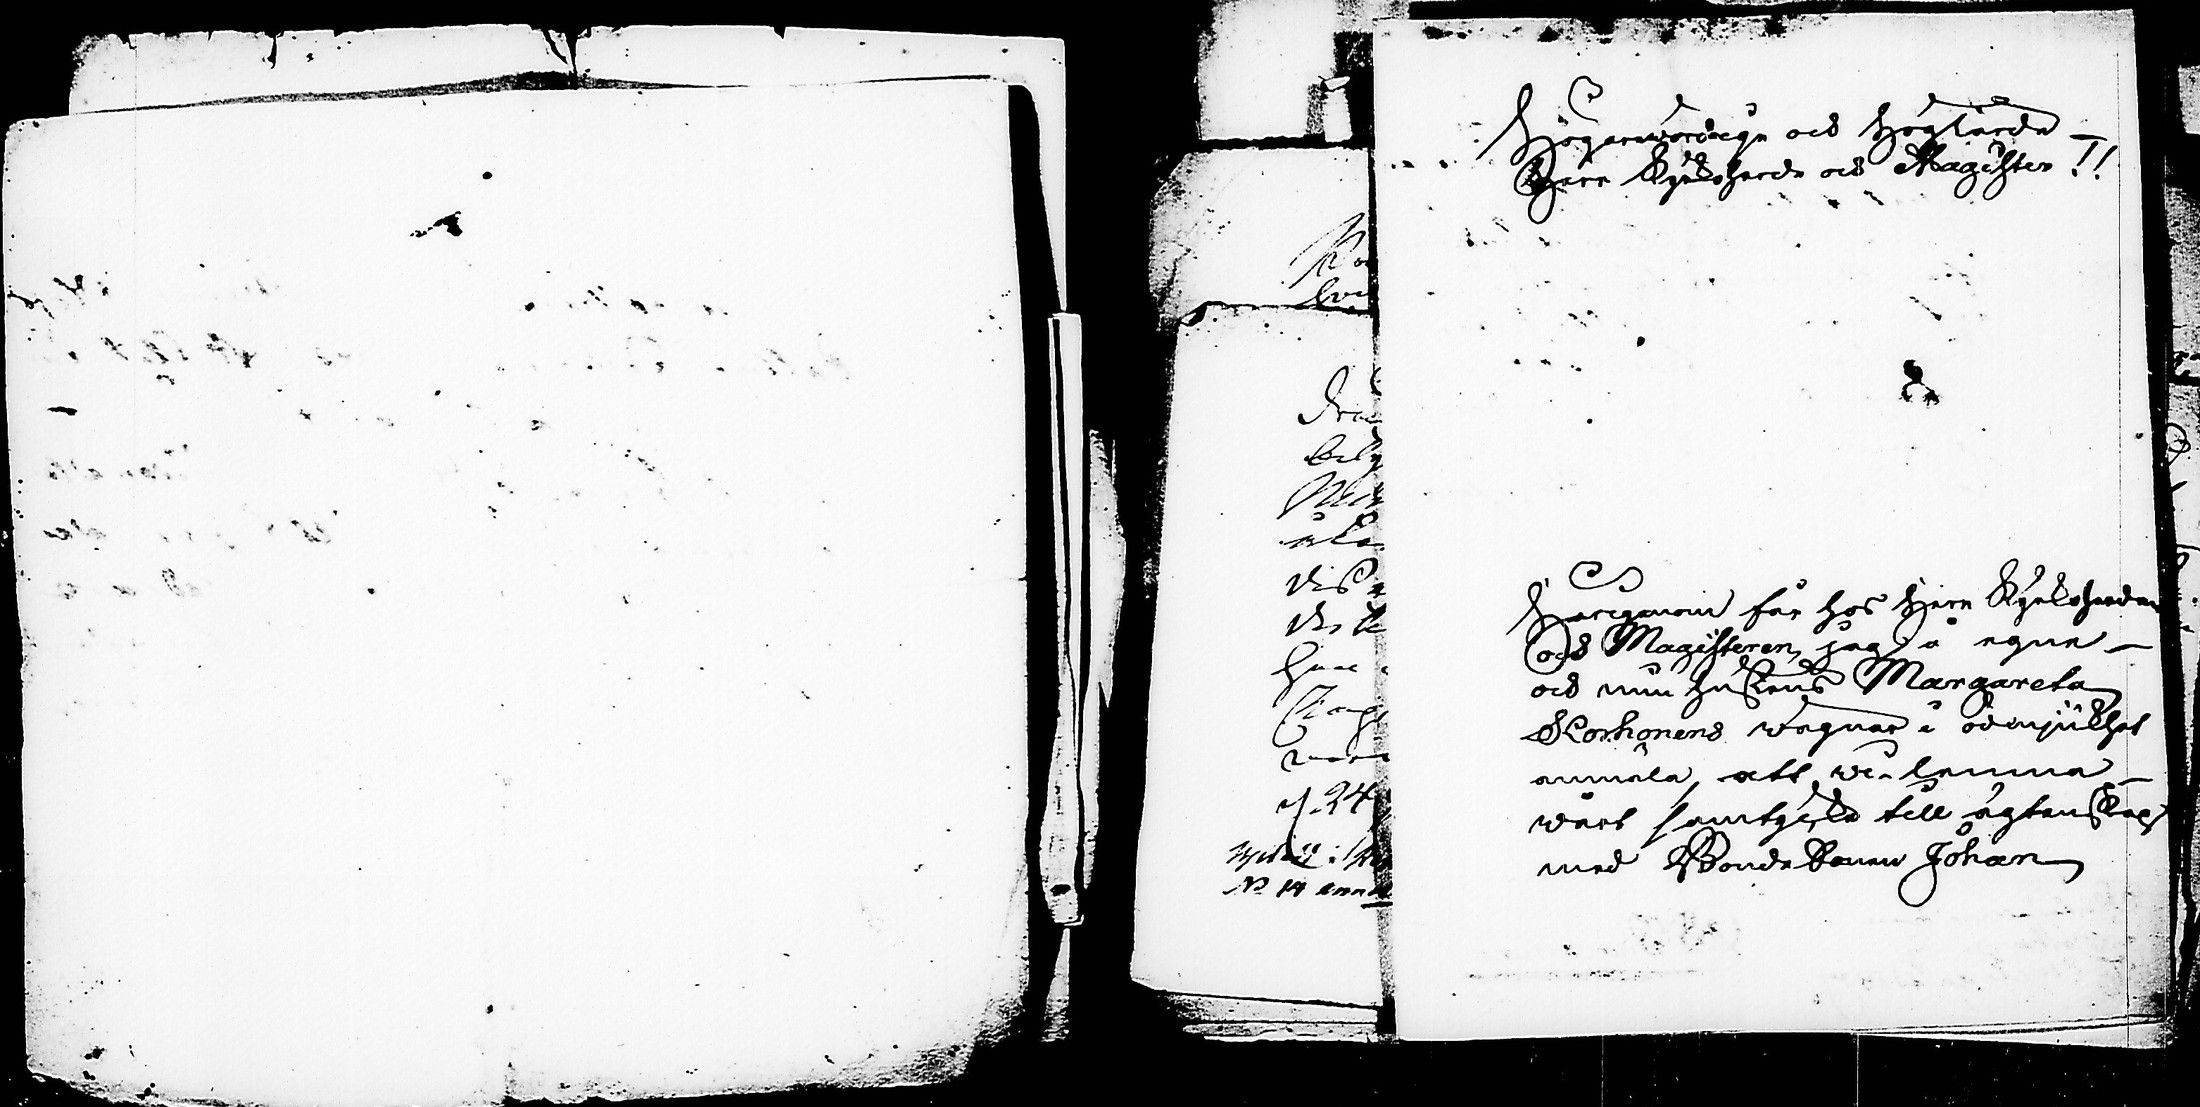 Högärewördige och Höglärde
Herr Kyrkoherde och Magister!!
Härigenom får hos Herr Kyrkoherden
och Magisteren, jag å egne
och min hustrus Margareta
Korhonens wägnar i ödmjukhet
anmäla, att wi lemna
wårt samtycke till ägtenskap
med Bonde Sonen Johan